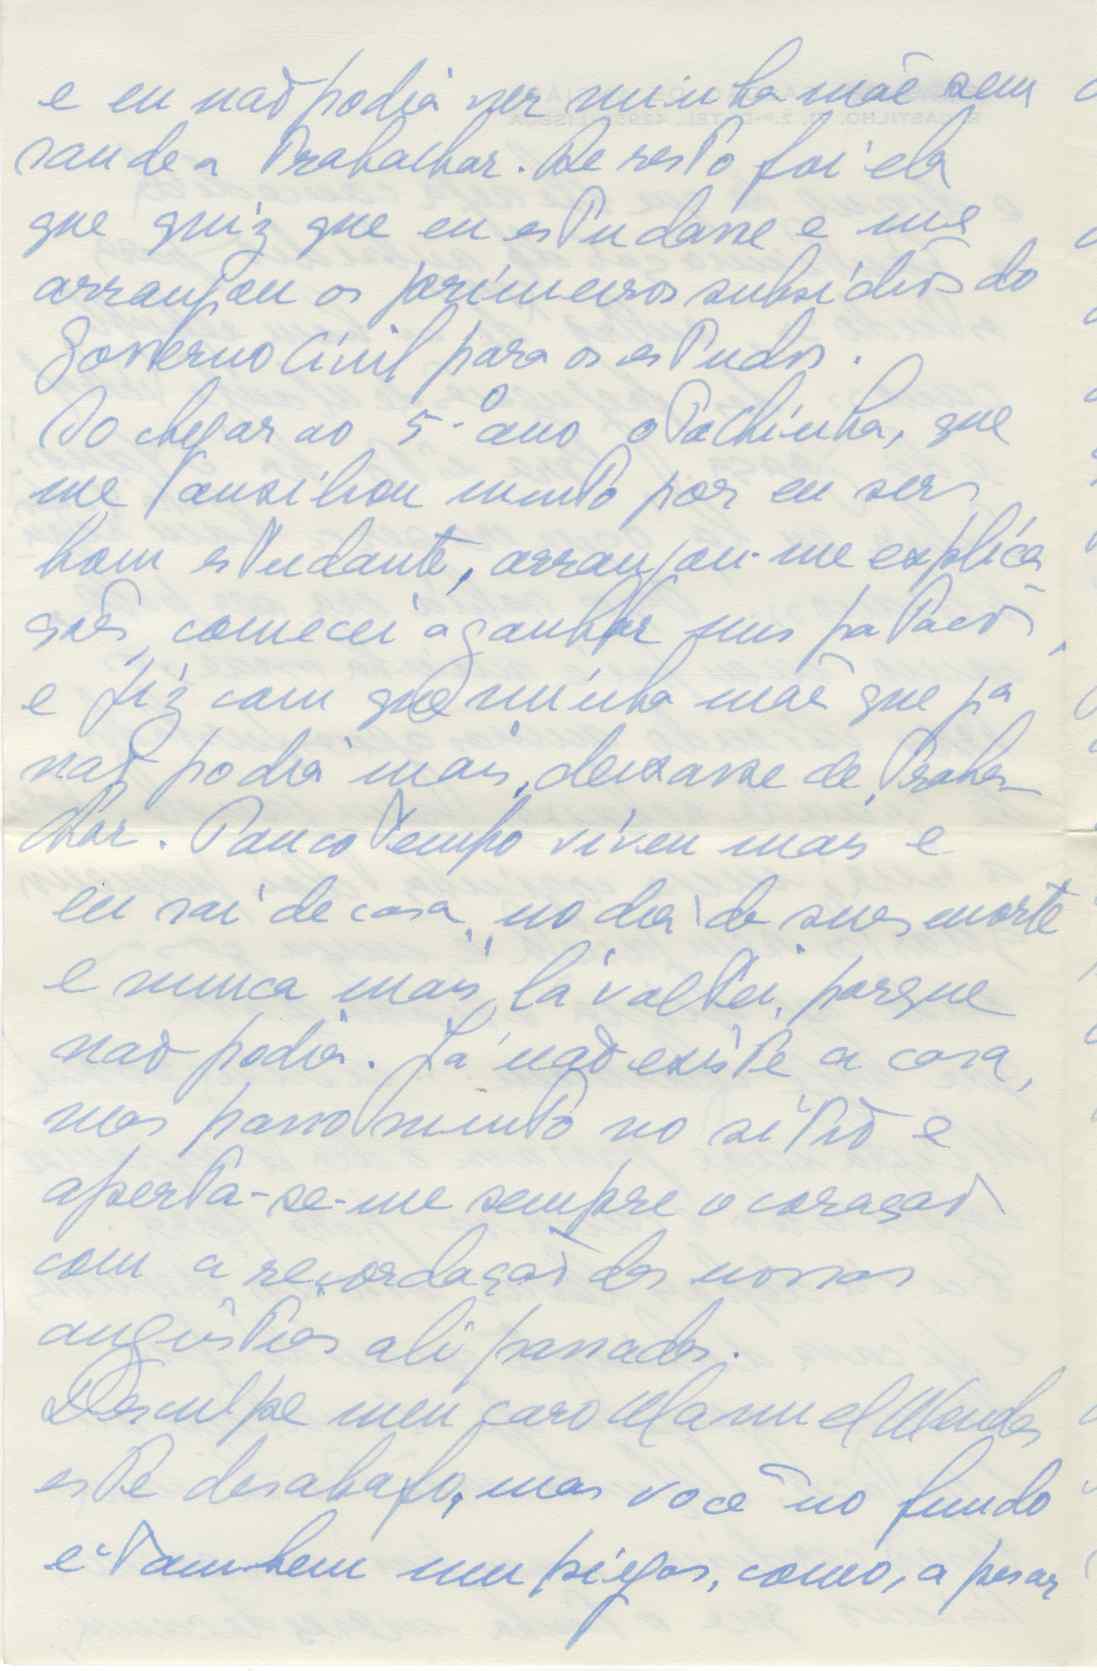 e eu não podia ver minha mãe sem
saude a trabalhar. De resto foi ela
que quiz que eu estudasse e me
arranjou os primeiros subsídios do
Governo Civil para os estudos.
Ao chegar ao 5.º ano o Pachinha, que
me auxiliou muito por eu ser
bom estudante, arranjou-me explica
ções, comecei a ganhar uns patacos,
e fiz com que minha mãe que já
não podia mais, deixasse de traba
lhar. Pouco tempo viveu mais e
eu saí de casa no dia da sua morte
e nunca mais lá voltei, porque
não podia. Já não existe a casa,
mas passo muito no sítio e
aperta-se-me sempre o coração
com a recordação das nossas
angústias ali passadas.
Desculpe meu caro Manuel Mendes
este desabafo, mas você no fundo
é tambem um piegas, como, a pesar